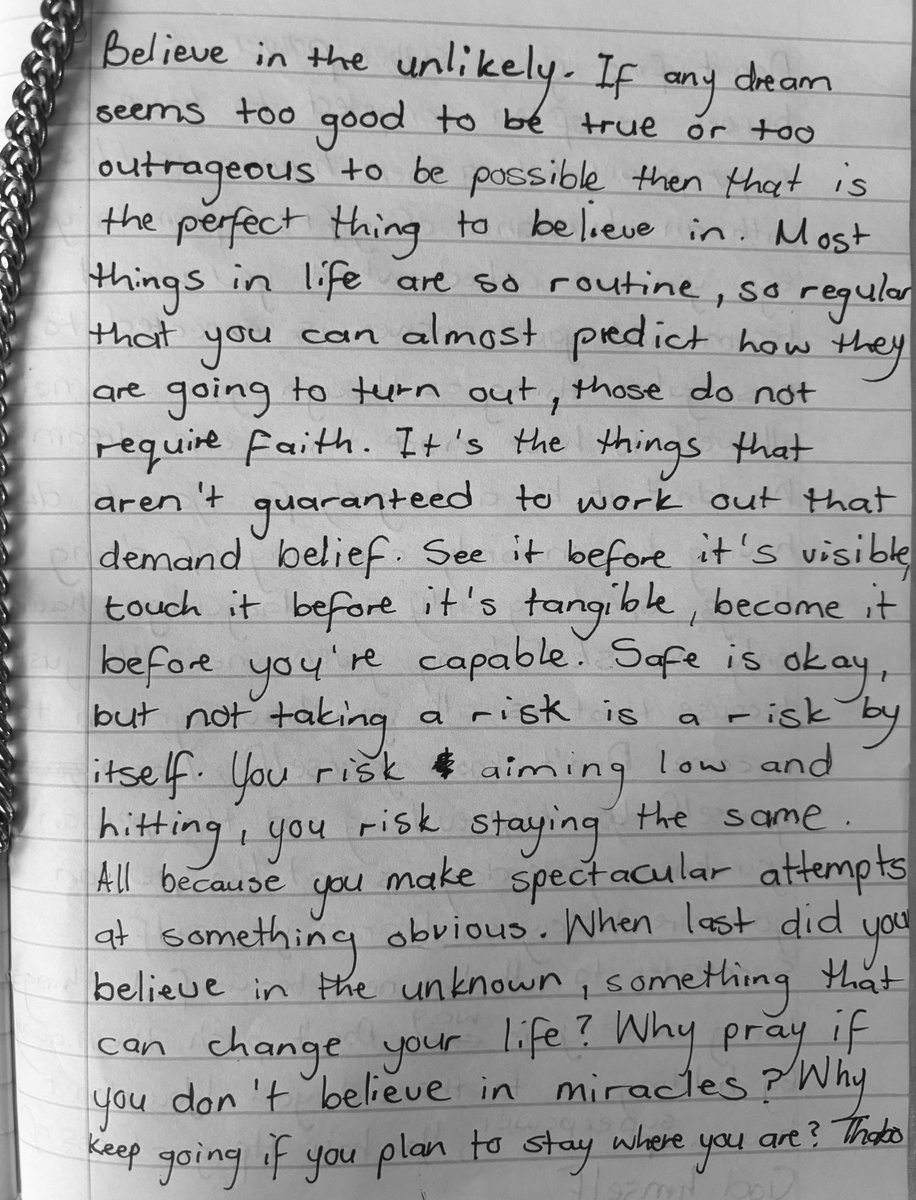 Believe in the unlikely. If any dream
seems too good to be true or too
outrageous to be possible then that is
the perfect thing to believe in. Most
things in life are so routine, so regular
that you can almost predict how they
are going to turn out, those do not
require faith. It's the things that
aren't guaranteed to work out that
demand belief. See it before it's visible,
touch it before it's tangible, become it
before you're capable. Safe is okay,
but not taking a risk is a risk by
itself. You risk aiming low and
hitting, you risk staying the same.
All because you make spectacular attempts
at something obvious. When last did you
believe in the unknown, something that
can change your life? Why pray if
you don't believe in miracles? Why
keep going if you plan to stay where you are? Thabo